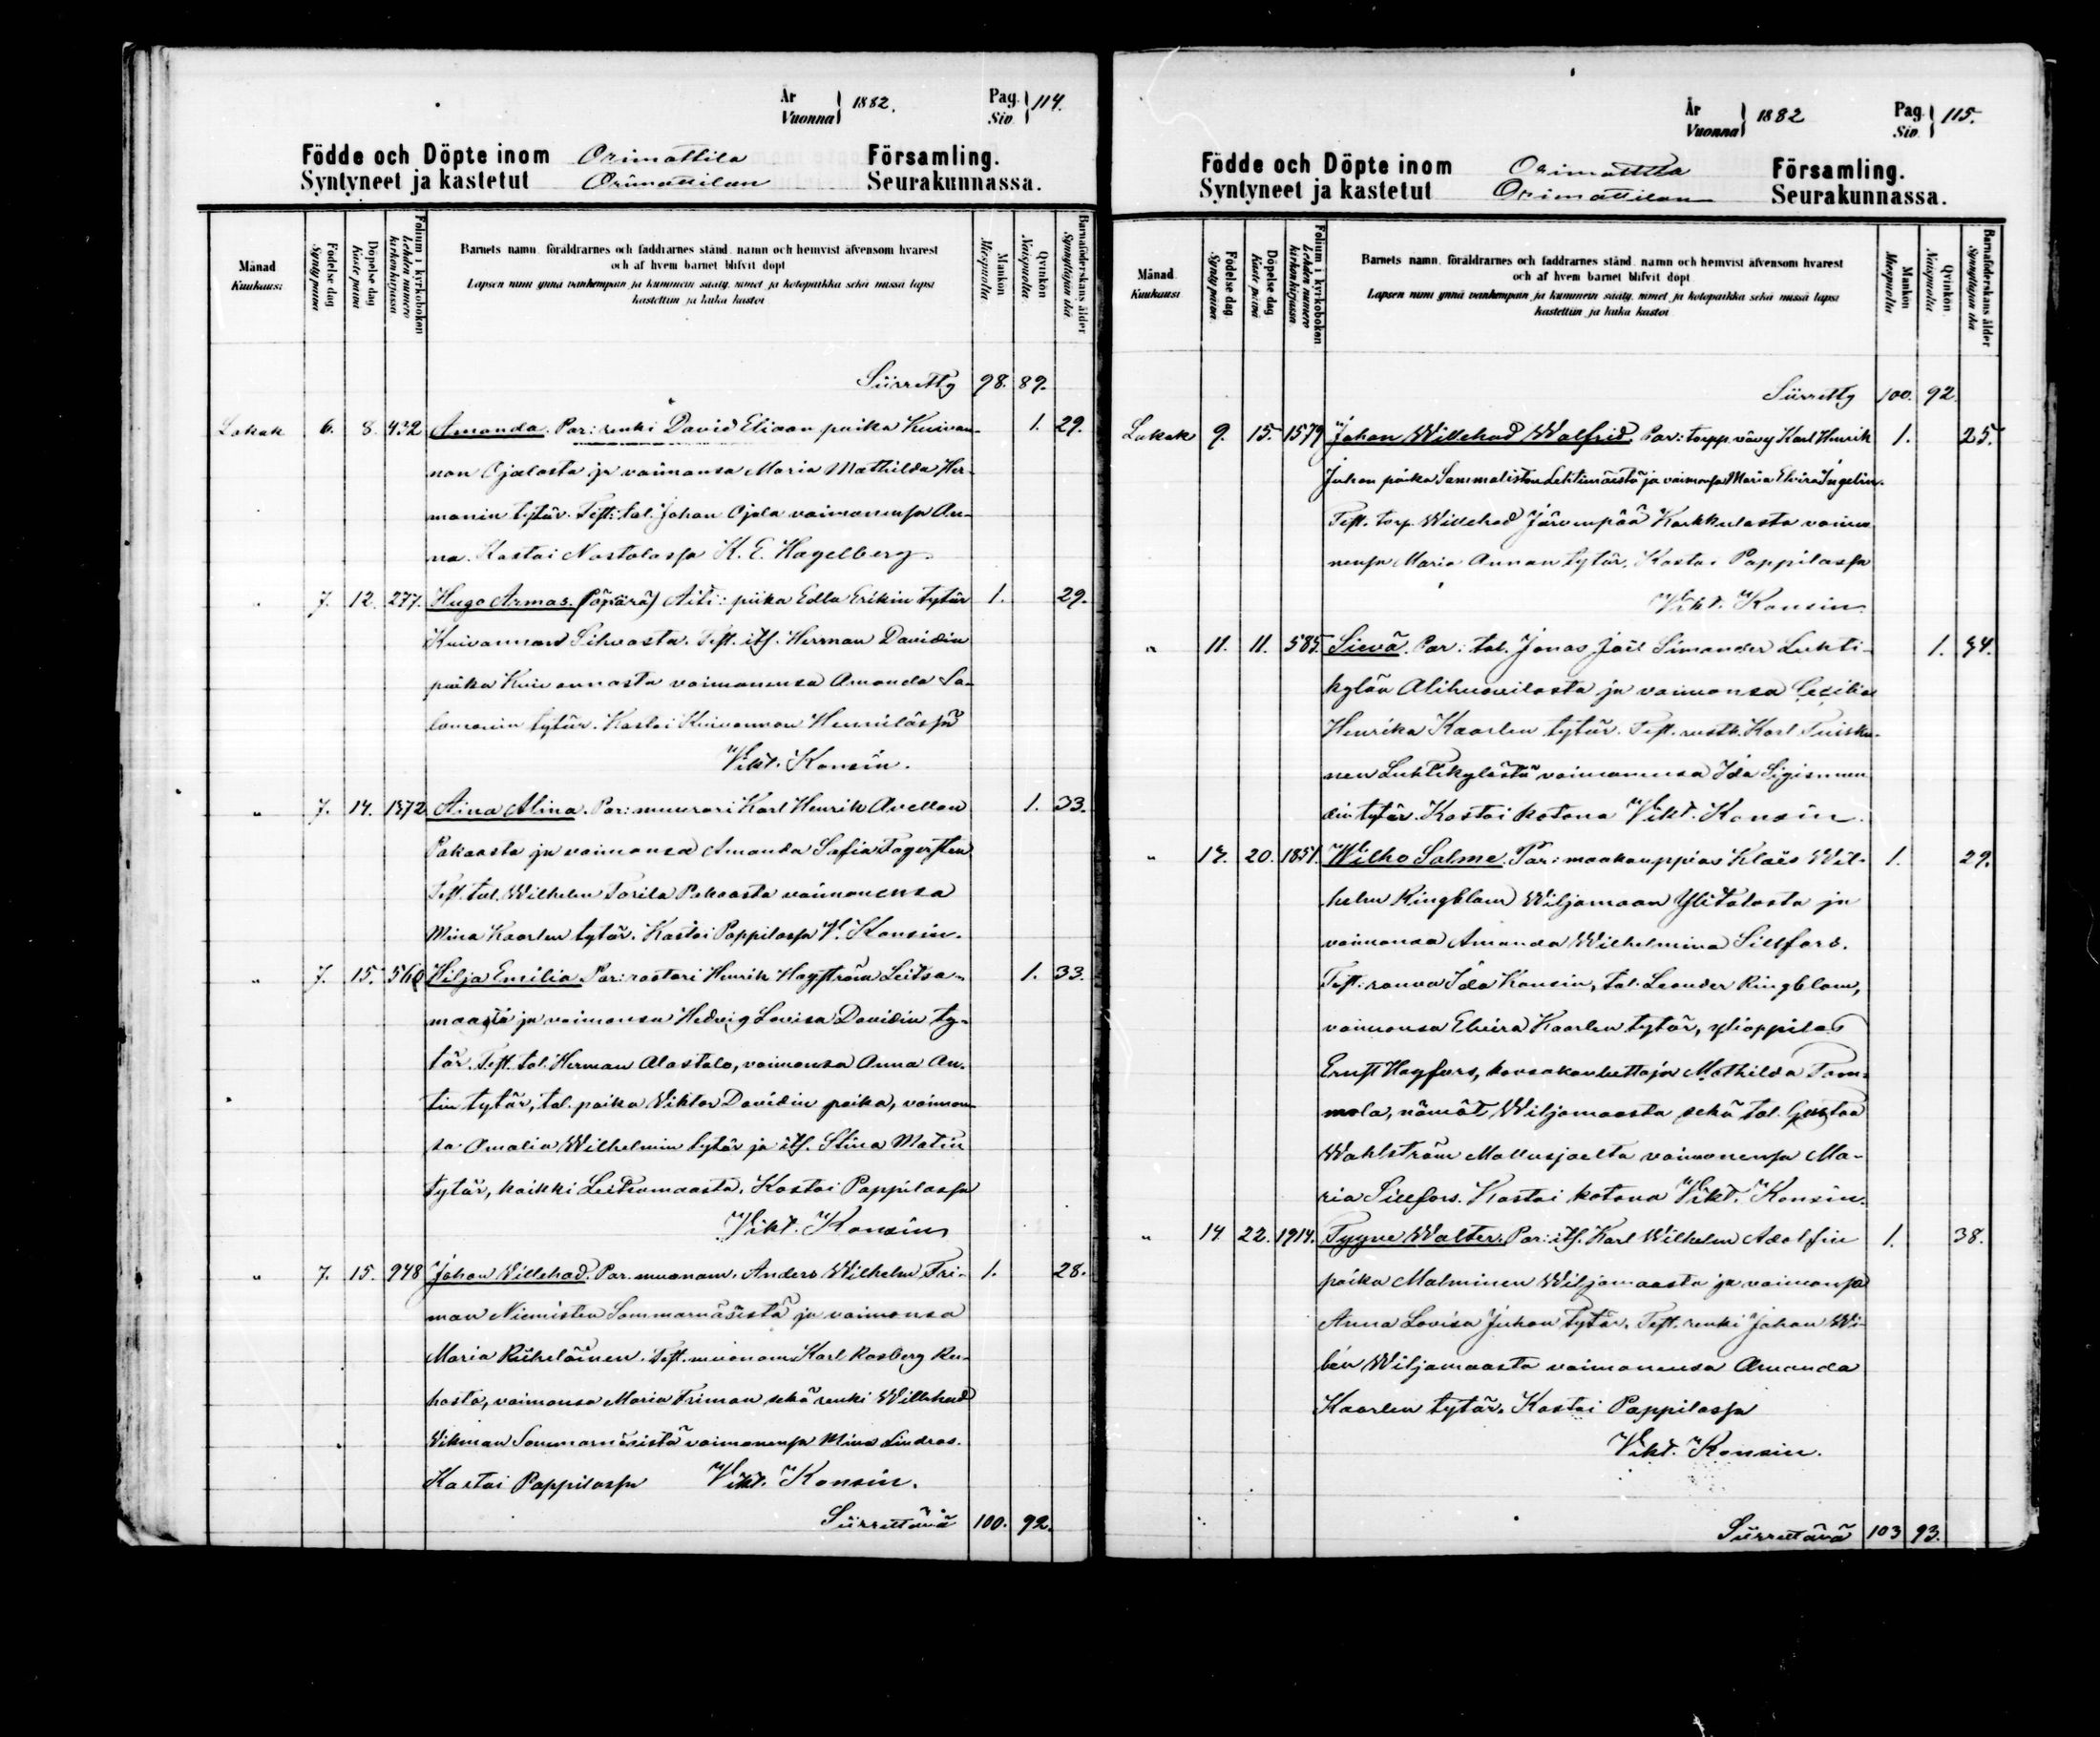 År
Vuonna } 1882.
Pag.
Siv. } 114.
Födde och Döpte inom Orimattila Församling.
Syntyneet ja kastetut Orimattilan Seurakunnassa.
Månad
Kuukausi
Födelse dag
Synty päivä
Döpelse dag
Kaste päivä
Folium i kyrkoboken
Lehden numero kirkonkirjassa
Barnets namn, föräldrarnes och faddrarnes stånd, namn och hemvist äfvensom hvarest
och af hvem barnet blifvit döpt
Lapsen nimi ynnä vanhempain ja kummein sääty, nimet ja kotopaikka sekä missä lapsi
kastettiin ja kuka kastoi
Mankön
Miespuolta
Qvinkön
Naispuolta
Barnaföderskans ålder
Synnyttäjän ikä
Siirretty 98. 89.
Lokak 6. 8. 432 Amanda. Par: renki David Elian poika Kuivan- 1. 29.
non Ojalasta ja vaimonsa Maria Mathilda Her-
manin tytär. Test: tal. Johan Ojala vaimonensa An-
na. Kastoi Nostolassa K. E. Hagelberg.
" 7. 12. 277. Hugo Armas. (Äpärä) Äiti: piika Edla Erikin tytär 1. 29.
Kuivannon Sihvosta. Test. its. Herman Davidin
poika Kuivannosta vaimonensa Amanda Sa-
lomonin tytär. Kastoi Kuivannon Heinilässä
Vikt. Konsin.
" 7. 14. 1372 Aina Alina. Par: muurari Karl Henrik Avellan 1. 33.
Pakaasta ja vaimonsa Amanda Sofia Fagersten
Test. tal. Wilhelm Torila Pakaasta vaimonensa
Mina Kaarlen tytär. Kastoi Pappilassa V. Konsin.
" 7. 15. 560 Hilja Emilia. Par: raatari Henrik Hagström Leitsa- 1. 33.
maasta ja vaimonsa Hedvig Lovisa Davidin ty-
tär. Test. tal. Herman Alastalo, vaimonsa Anna An-
tin tytär, tal. poika Viktor Davidin poika, vaimon-
sa Amalia Wilhelmin tytär ja its. Stina Matin
tytär, kaikki Leitsamaasta. Kastoi Pappilassa
Vikt. Konsin
" 7. 15. 948 Johan Villehad. Par. muonam. Anders Wilhelm Fri- 1. 28.
man Niemistön Sommarnäsistä ja vaimonsa
Maria Riiheläinen. Test. muonam. Karl Rosberg Ru-
hosta, vaimonsa Maria Friman sekä renki Willehad
Vikman Sommarnäsistä vaimonensa Mina Lindros.
Kastoi Pappilassa Vikt. Konsin.
Siirrettävä 100. 92.
År
Vuonna } 1882
Pag.
Siv. } 115.
Födde och Döpte inom Orimattila Församling.
Syntyneet ja kastetut Orimattilan Seurakunnassa.
Månad
Kuukausi
Födelse dag
Synty päivä
Döpelse dag
Kaste päivä
Folium i kyrkoboken
Lehden numero kirkonkirjassa
Barnets namn, föräldrarnes och faddrarnes stånd, namn och hemvist äfvensom hvarest
och af hvem barnet blifvit döpt
Lapsen nimi ynnä vanhempain ja kummein sääty, nimet ja kotopaikka sekä missä lapsi
kastettiin ja kuka kastoi
Mankön
Miespuolta
Qvinkön
Naispuolta
Barnaföderskans ålder
Synnyttäjän ikä
Siirretty 100. 92.
Lokak 9. 15. 1579 Johan Willehad Walfrid. Par: torpp. vävy Karl Henrik 1. 25.
Juhon poika Sammaliston Lehtimäestä ja vaimonsa Maria Elvira Ingelin.
Test. torp. Willehad Järvenpää Karkkulasta vaimo
nensa Maria Annan tytär. Kastoi Pappilassa
Vikt. Konsin.
" 11. 11. 585. Sievä. Par: tal. Jonas Joël Simander Luhti- 1. 34.
kylän Alihuovilasta ja vaimonsa Cecilia
Henrika Kaarlen tytär. Test. rusth. Karl Tuisku-
nen Luhtikylästä vaimonensa Ida Sigismun
din tytär. Kastoi kotona Vikt. Konsin.
" 12. 20. 1851. Wilho Salme. Par: maakauppias Klaës Wil- 1. 29.
helm Ringblom Wiljamaan Ylitalosta ja
vaimonsa Amanda Wilhelmina Sillfors.
Test: rouva Ida Konsin, tal. Leander Ringblom,
vaimonsa Elvira Kaarlen tytär, ylioppilas
Ernst Hagfors, kansakoulettaja Mathilda Tom-
mola, nämät Wiljamaasta sekä tal. Gustaa
Wahlström Mallusjoelta vaimonensa Ma-
ria Sillfors. Kastoi kotona Vikt. Konsin.
" 14. 22. 1914. Tyyne Walter. Par: its. Karl Wilhelm Adolfin 1. 38.
poika Malminen Wiljamaasta ja vaimonsa
Anna Lovisa Juhon tytär. Test. renki Johan Wi-
lén Wiljamaasta vaimonensa Amanda
Kaarlen tytär. Kastoi Pappilassa
Vikt. Konsin.
Siirrettävä 103 93.